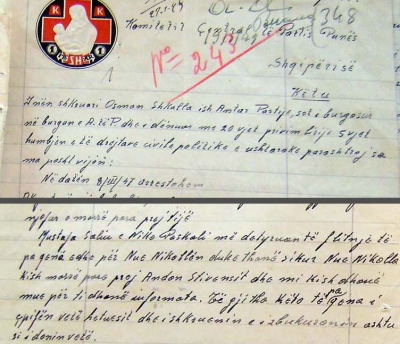 K K
1 1
29.1.49
348
Komitetit Qendror të Partis Punës
19/2/49
1
No = 243
Shqipërisë
Këtu
I nën shkruari Osman Shkalla ish Antar Partije, sot i burgosur
në burgun e A. të P. dhe i dënuar me 20 vjet privim lirije 5 vjet
humbjen e të drejtave civile politike e ushtarake parashtroj sa
ma posht vijon:
Në datën 8/VII/47 arrestohem
e morrë para prej tijë
Mustafa Saliu e Niko Paskali më detyruan të flitnje të
pa gena edhe për Nue Nikollën duke thanë sikur Nue Nikolla
kish morrë para prej Andon Stivensit dhe mi kish dhanë
mue për ti dhanë informata. Të gjitha këto të pa gena i
vetë hetuesit dhe i shkruenin e i zbukuronin ashtu
si i donin vetë.